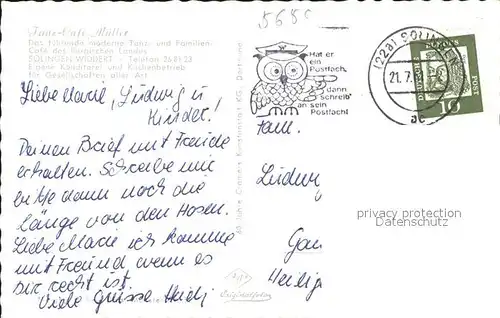 5685
Tanz-Café Müller
Das führende moderne Tanz- und Familien-
Café des Bergischen Landes
SOLINGEN-WIDDERT · Telefon 26 81 23
Eigene Konditorei und Küchenbetrieb
für Gesellschaften aller Art
Liebe Marie, Ludwig u
Kinder!
Deinen Brief mit Freude
erhalten. Schreibe mir
bitte dann noch die
länge von den Hosen.
Liebe Marie ich komme
mit Freund wenn es
dir recht ist.
Viele Grüsse Heidi
Hat er
ein
Postfach,
dann
schreib'
an sein
Postfach!
(22a) SOLINGEN
21.7.
DEUTSCHE
POST
10
Fam.
Ludwig
Heilig
privacy protection
Datenschutz
Originalfoto